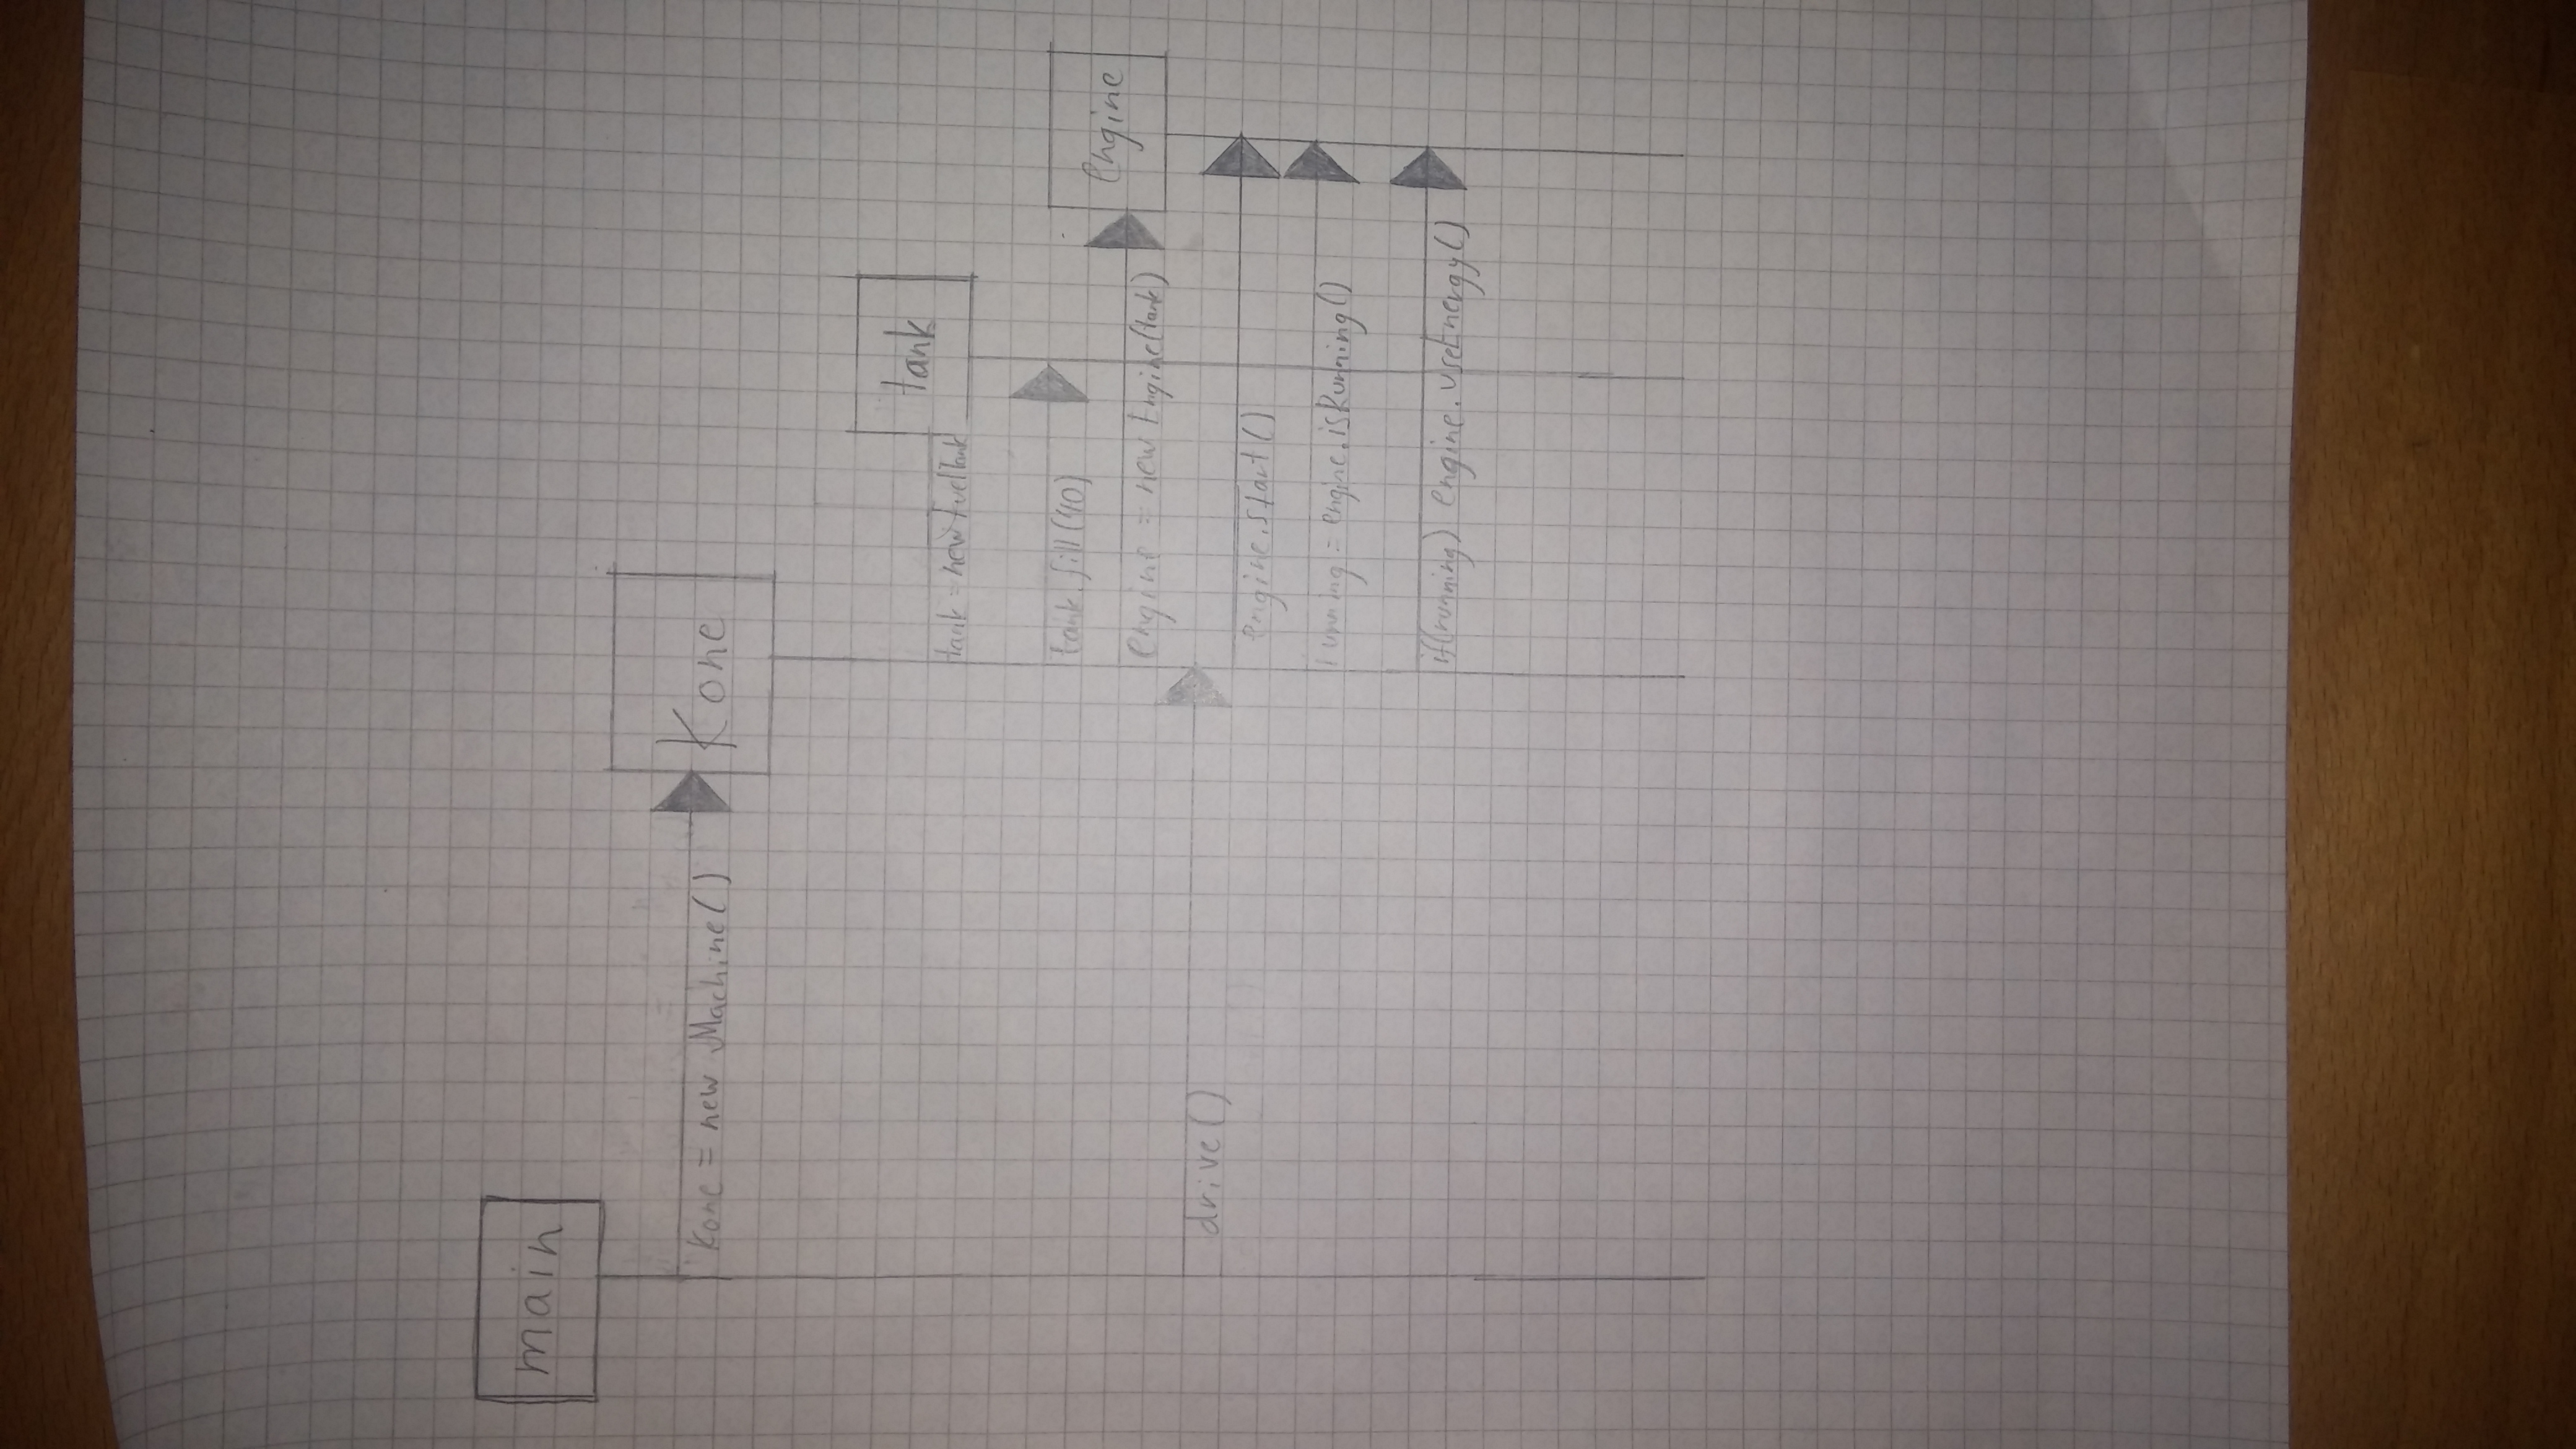 main
Kone
Kone = new Machine()
tank
tank = new FuelTank
tank.fill(40)
engine
engine = new Engine(tank)
drive()
engine.start()
running = engine.isRunning()
if(running) engine.useEnergy()